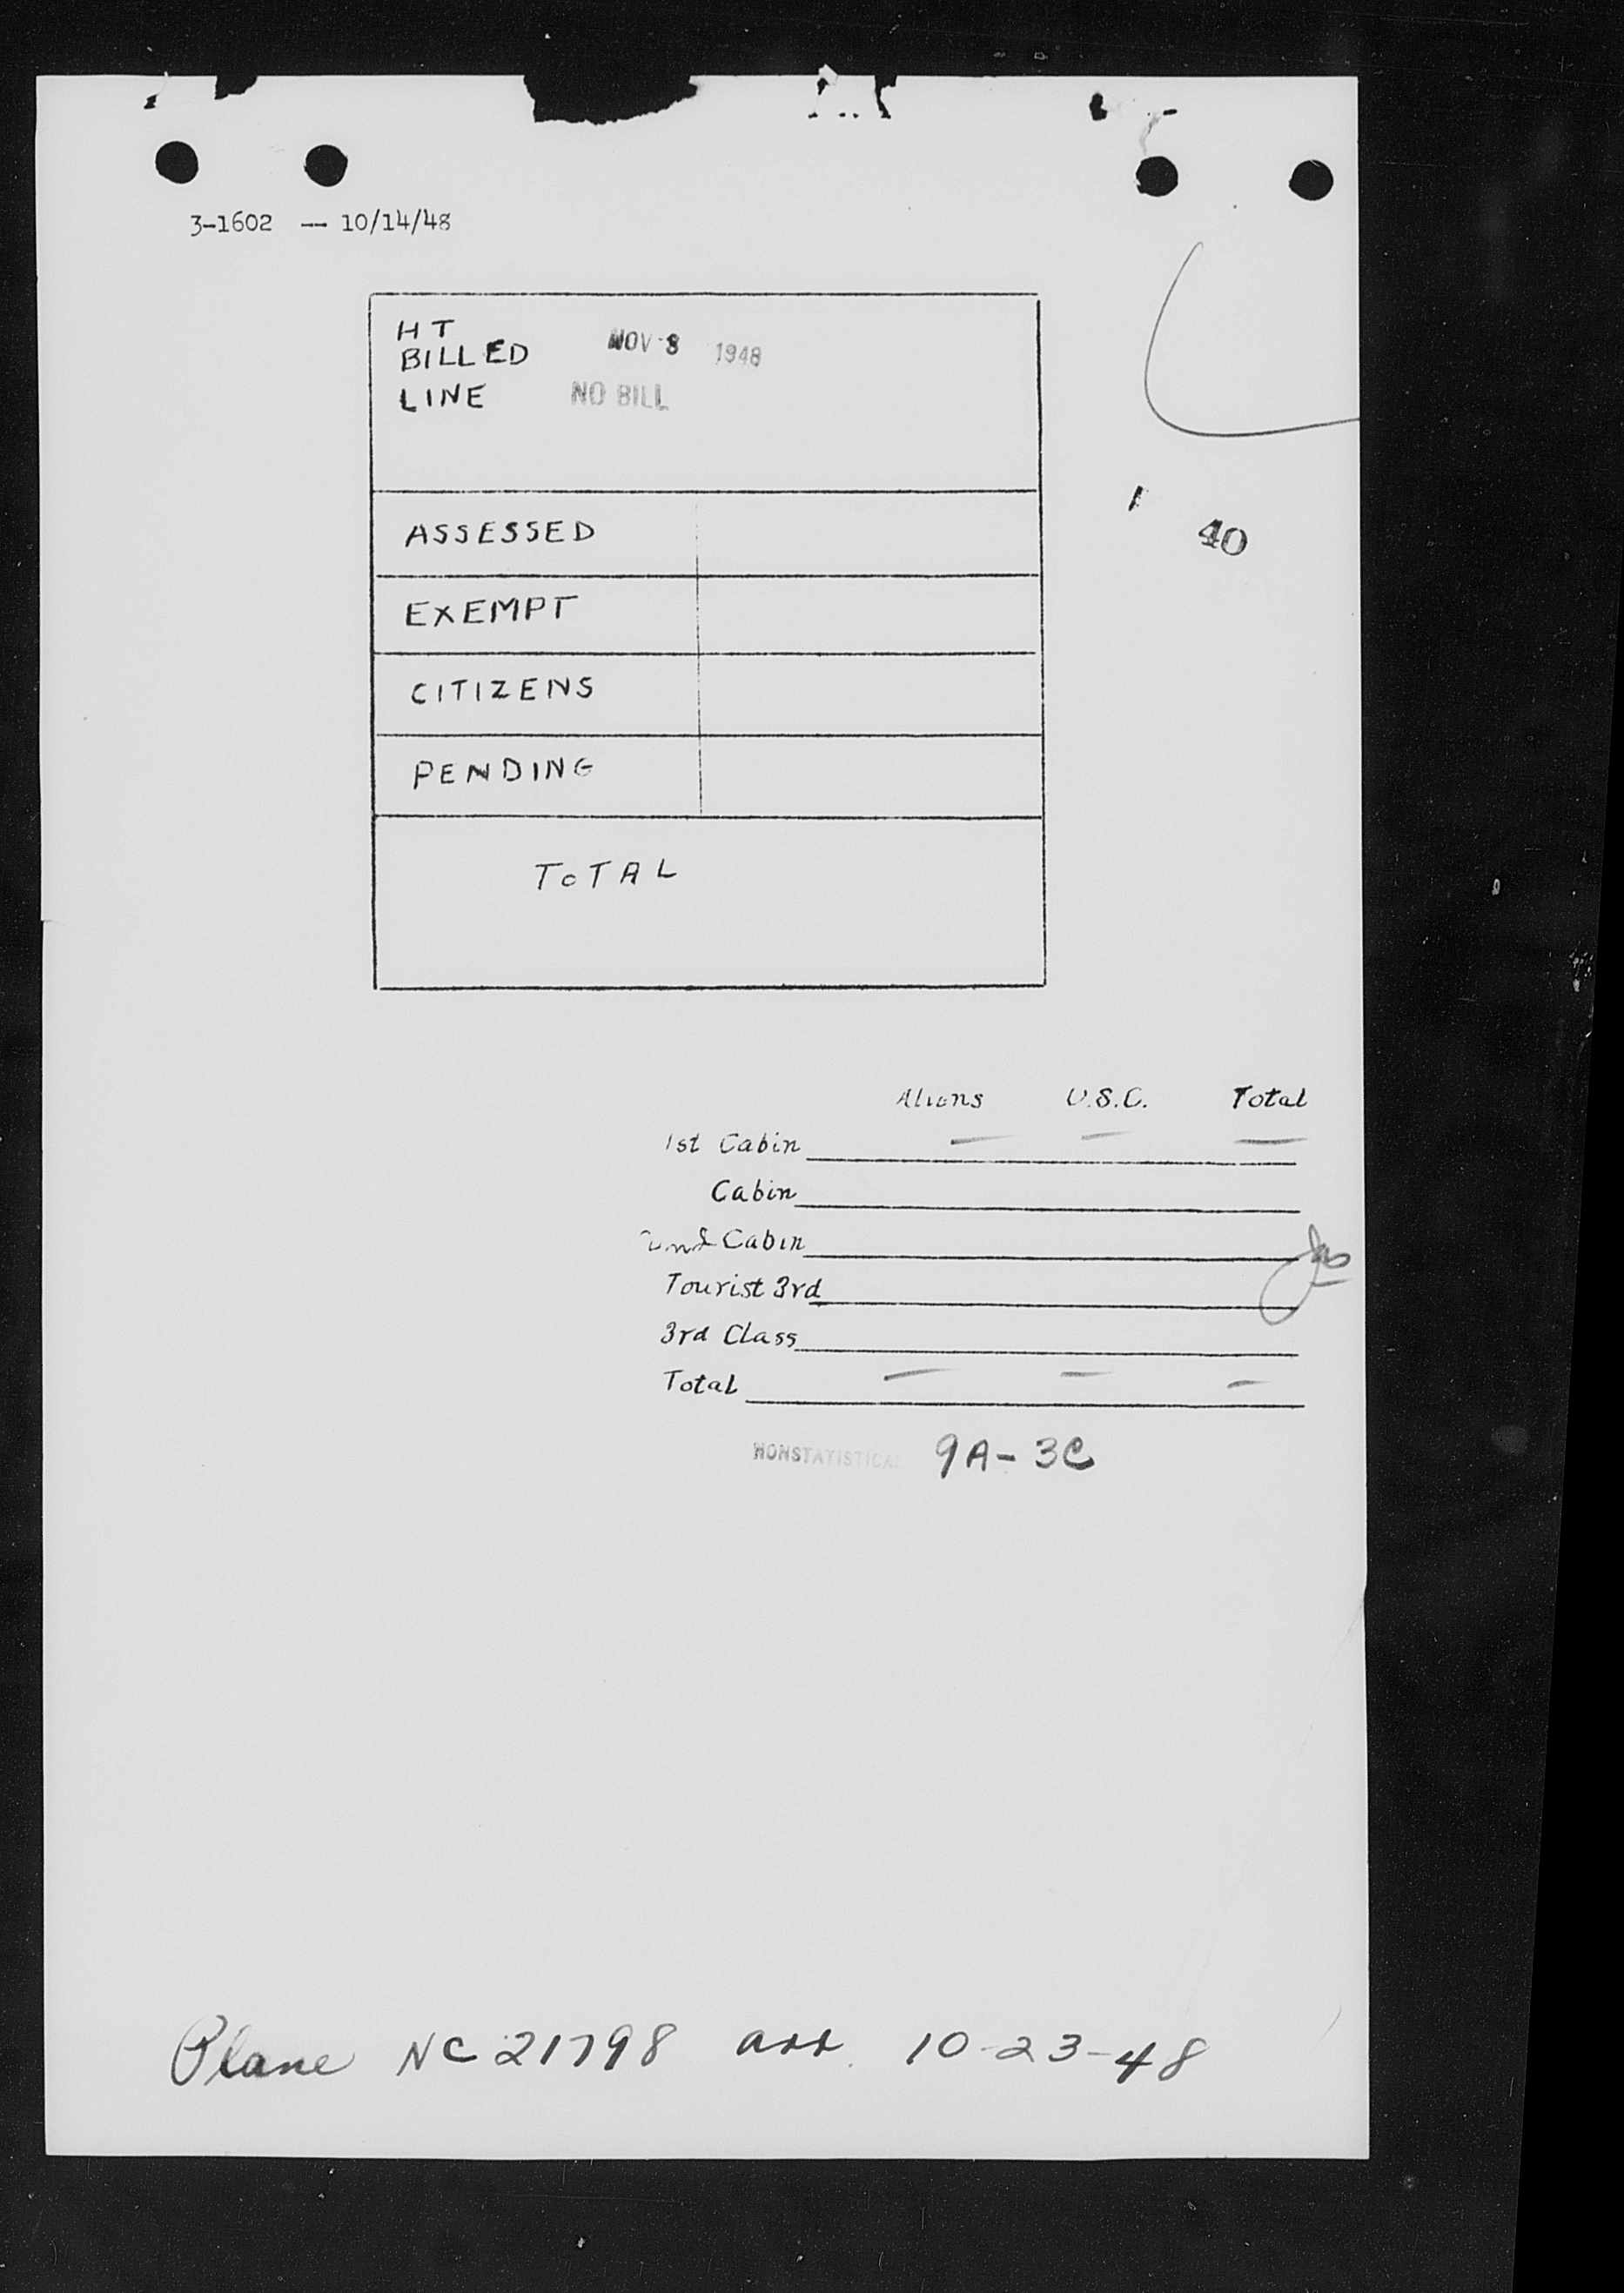 3-1602 -- 10/14/48
HT
BILLED NOV 8 1948
LINE NO BILL
40
ASSESSED
EXEMPT
CITIZENS
PENDING
TOTAL
Aliens U.S.C. Total
1st Cabin — — —
Cabin
2nd Cabin
Tourist 3rd
3rd Class
Total — — —
NONSTATISTICAL 9A-3C
Plane NC 21798 arr. 10-23-48